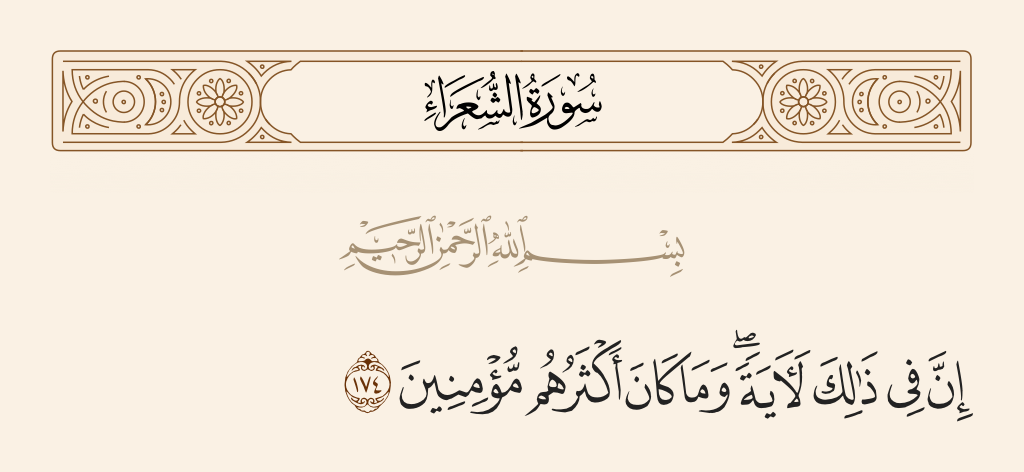 سُورَةُ الشُّعَرَاءِ
بِسْمِ ٱللَّهِ ٱلرَّحْمَٰنِ ٱلرَّحِيمِ
إِنَّ فِى ذَٰلِكَ لَـَٔايَةً ۖ وَمَا كَانَ أَكْثَرُهُم مُّؤْمِنِينَ ١٧٤